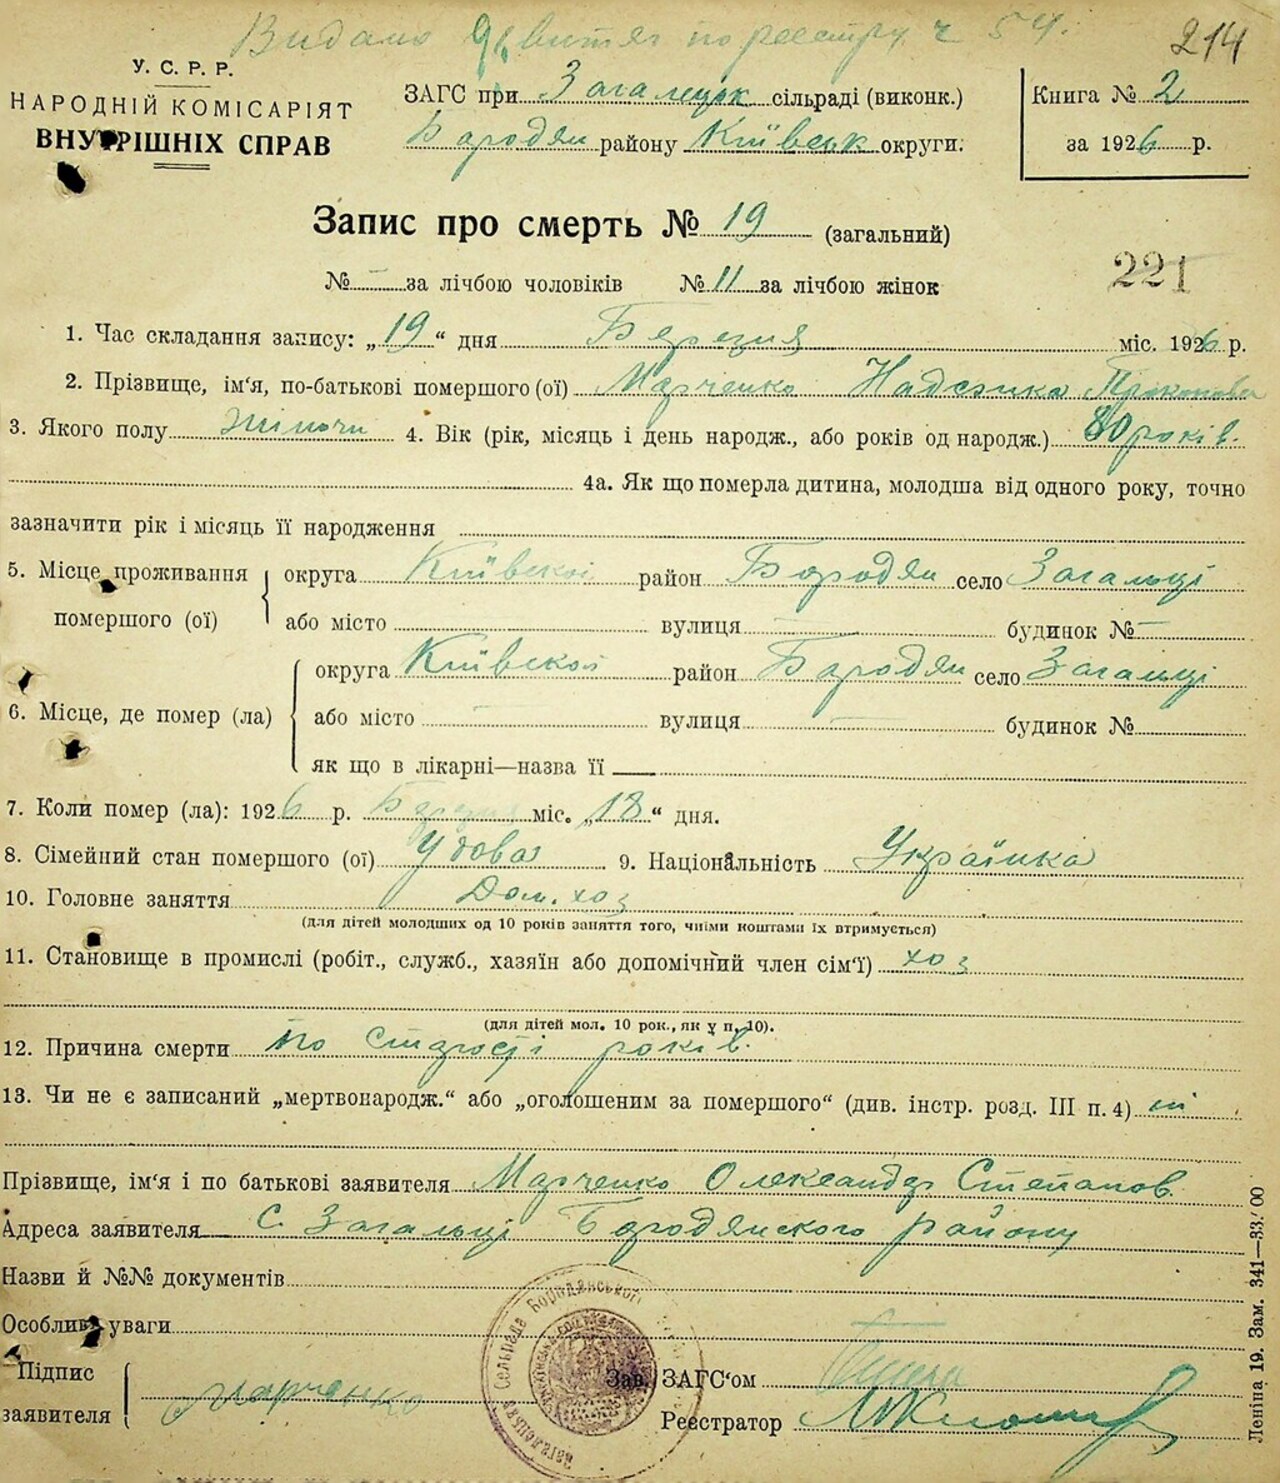 Видано витяг по реєстру ч 54.
214
У. С. Р. Р.
НАРОДНІЙ КОМІСАРІЯТ
ВНУТРІШНІХ СПРАВ
ЗАГС при Загалецьк сільраді (виконк.)
Бородян району Київськ округи.
Книга № 2
за 1926 р.
Запис про смерть № 19 (загальний)
221
№ — за лічбою чоловіків № 11 за лічбою жінок
1. Час складання запису: „19“ дня Березня міс. 1926 р.
2. Прізвище, ім'я, по-батькові помершого (ої) Марченко Надежка Прокопова
3. Якого полу жіночи 4. Вік (рік, місяць і день народж., або років од народж.) 80 років.
4а. Як що померла дитина, молодша від одного року, точно
зазначити рік і місяць її народження
5. Місце проживання помершого (ої) округа Київскої район Бородян село Загальці
або місто — вулиця — будинок № —
6. Місце, де помер (ла) округа Київской район Бородян село Загальці
або місто — вулиця — будинок №
як що в лікарні—назва її —
7. Коли помер (ла): 1926 р. Березня міс. „18“ дня.
8. Сімейний стан помершого (ої) Удова 9. Національність Українка
10. Головне заняття Дом. хоз
(для дітей молодших од 10 років заняття того, чиїми коштами їх втримується)
11. Становище в промислі (робіт., служб., хазяїн або допомічний член сім'ї) хоз
(для дітей мол. 10 рок., як у п. 10).
12. Причина смерти по старості років.
13. Чи не є записаний „мертвонародж.“ або „оголошеним за помершого“ (див. інстр. розд. III п. 4) ні
Прізвище, ім'я і по батькові заявителя Марченко Олександр Степанов.
Адреса заявителя с. Загальці Бородянского району
Назви й №№ документів
Особливі уваги —
Підпис заявителя Марченко
Зав. ЗАГС'ом
Реєстратор
Загалецька Сельрада Бородянського
Леніна 19. Зам. 341—33/00